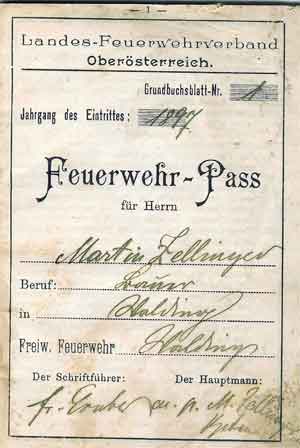 — 1 —
Landes-Feuerwehrverband
Oberösterreich.
Grundbuchsblatt-Nr. 1
Jahrgang des Eintrittes: 1897
Feuerwehr-Pass
für Herrn
Martin Zellinger
Beruf: Bauer
in Walding
Freiw. Feuerwehr Walding
Der Schriftführer: Der Hauptmann:
M. Zellinger